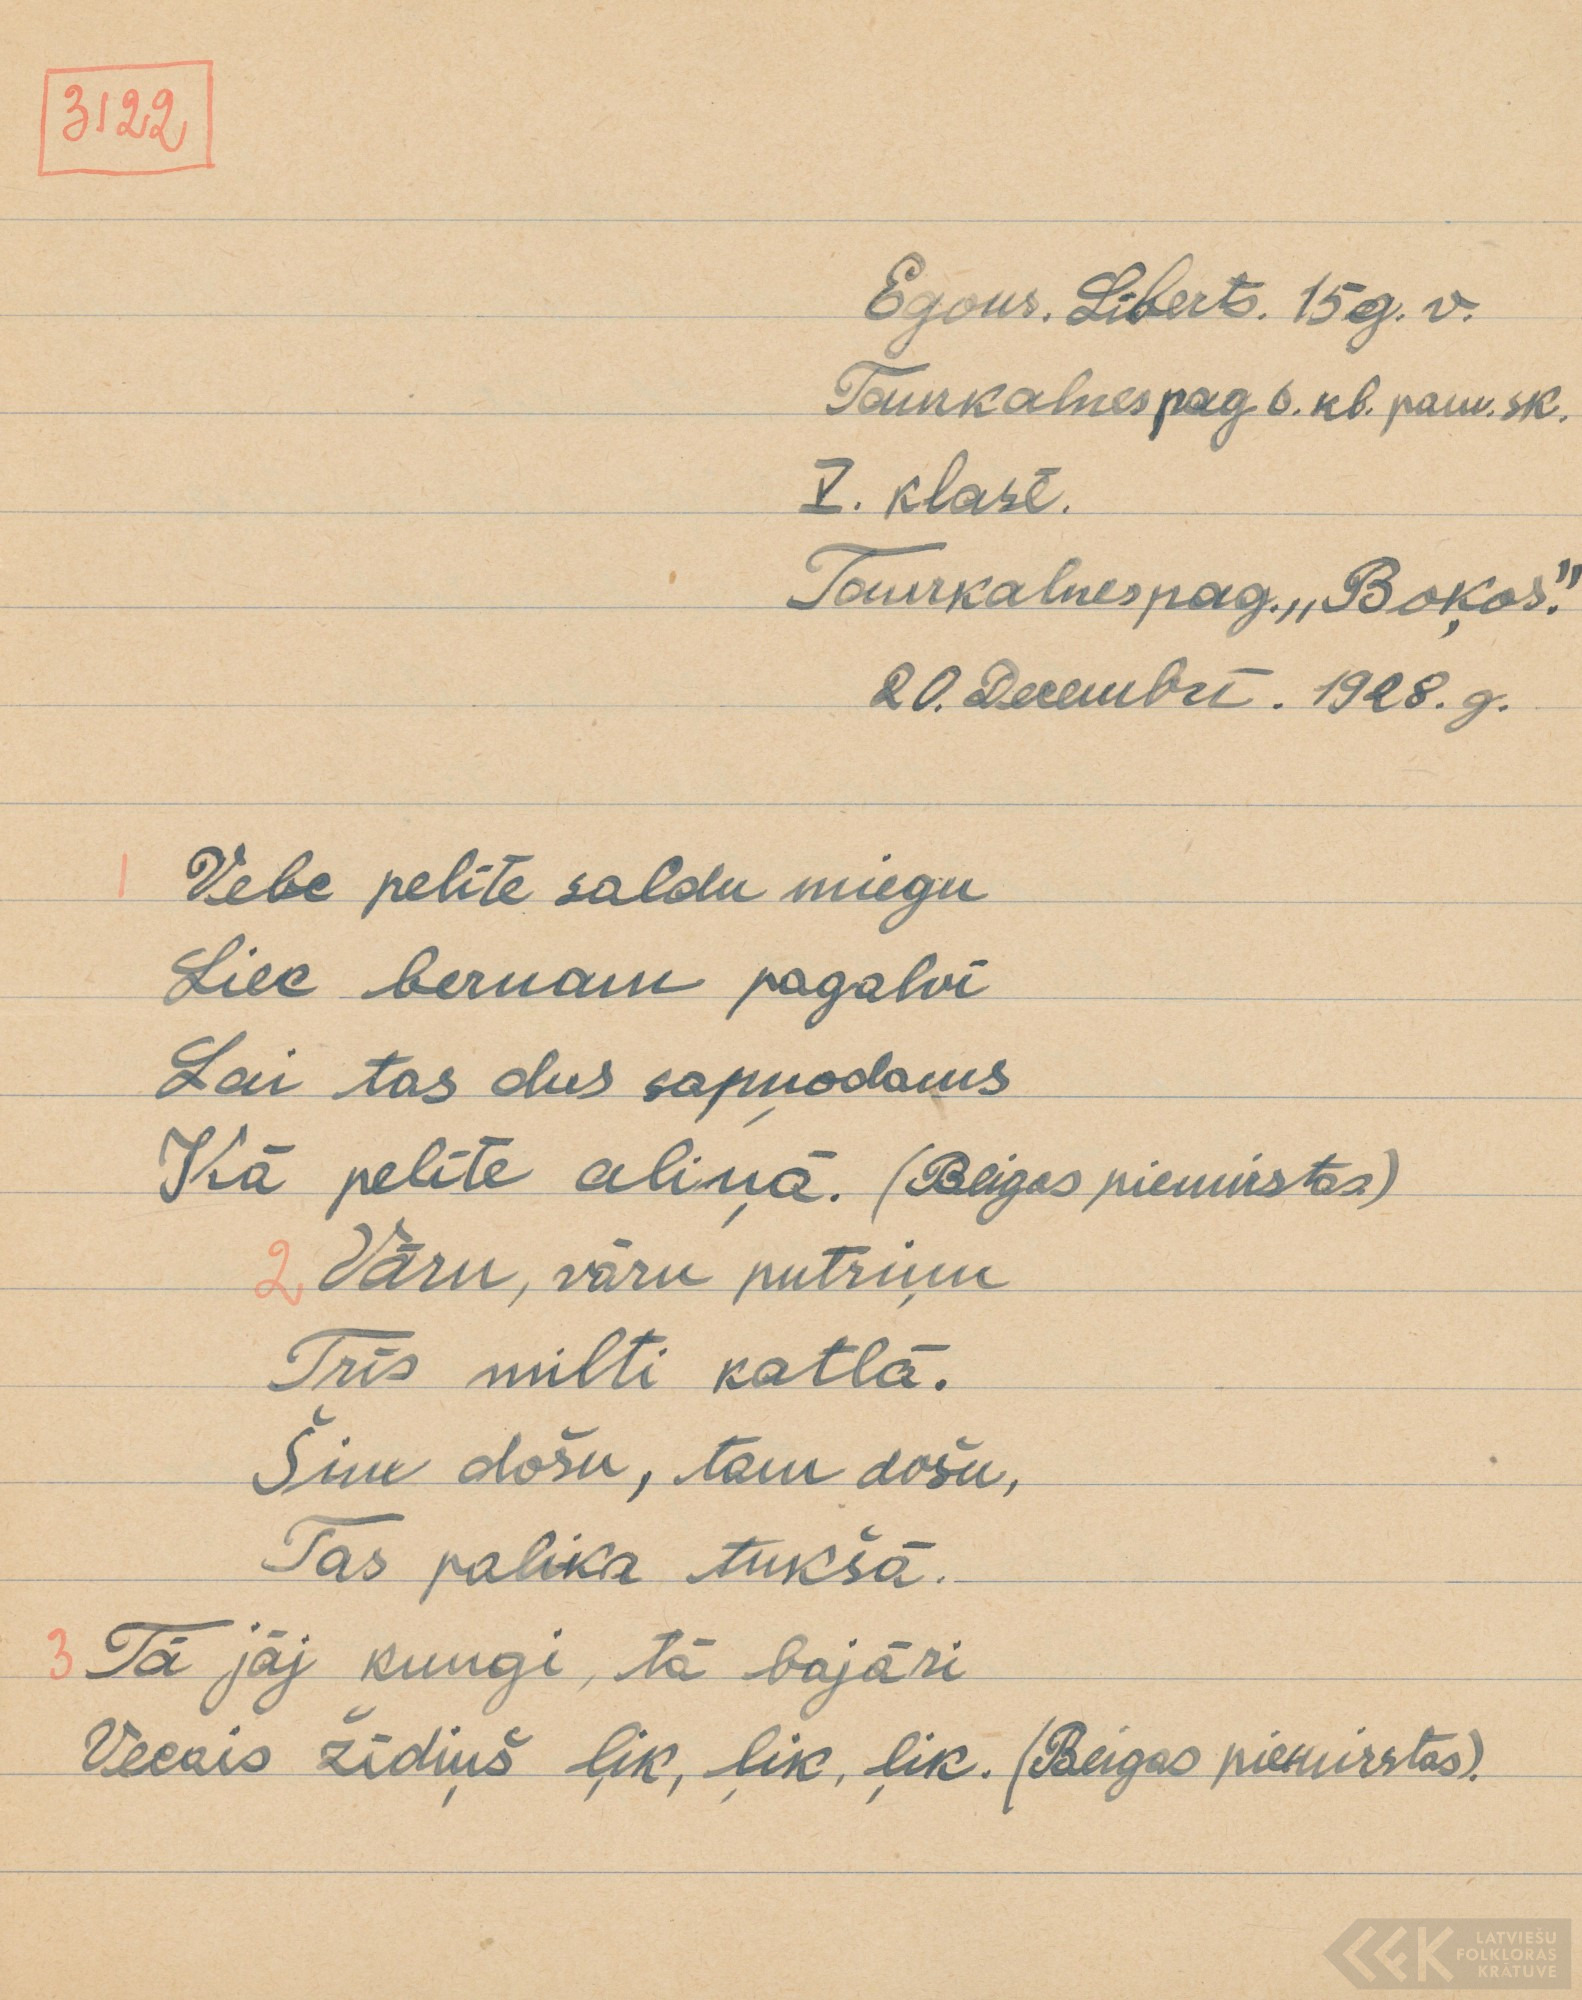 3122
Egons. Līberts. 15 g. v.
Taurkalnes pag 6. kl. pam. sk.
V. klasē.
Taurkalnes pag. „Boķos."
20. Decembrī. 1928. g.
1 Velc pelīte saldu miegu
Liec bernam pagalvī
Lai tas dus sapņodams
Kā pelīte aliņā. (Beigas piemirstas)
2 Vāru, vāru putriņu
Trīs milti katlā.
Šim došu, tam došu,
Tas palika tukšā.
3 Tā jāj kungi, tā bajāri
Vecais židiņš ļik, ļik, ļik. (Beigas piemirstas).
LFK LATVIEŠU
FOLKLORAS
KRĀTUVE